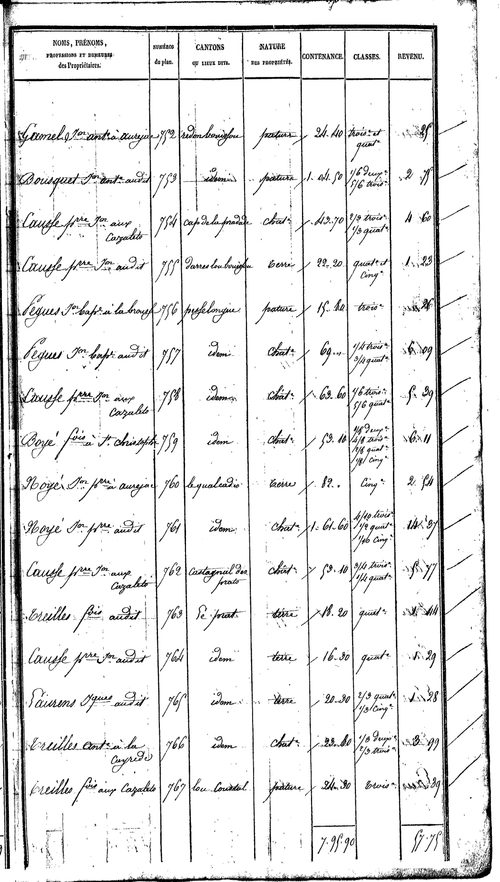 NOMS, PRÉNOMS, PROFESSIONS ET DEMEURES des Propriétaires. NUMÉROS du plan. CANTONS OU LIEUX DITS. NATURE DES PROPRIÉTÉS. CONTENANCE. CLASSES. REVENU.
Gamel Jn ant. à aurejac 752 redon bouyssou pature 24.40 trois. et quat. 25
Bousquet Jn ant. audit 753 idem pature 1.04.50 1/6 deux. 5/6 trois. 2
Causse pre Jn aux Cazalets 754 cap de la pradade chat. 43.70 2/3 trois. 1/3 quat. 4 60
Causse pre Jn audit 755 darres lou bouyssou terre 22.20 quat. et Cinq. 1 23
Pégues Jn bapt. à la 756 pature trois. 26
Pégues Jn bapt. audit 757 idem chat. 69 1/4 trois. 3/4 quat. 6 09
Causse pre Jn aux Cazalets 758 idem chat. 63.60 1/6 trois. 5/6 quat. 5 39
Boyé fois à St. Christophe 759 idem chat. 53.10 6 11
Noyé Jn pre à aurejac 760 terre 82 Cinq. 2 54
Noyé Jn pre audit 761 idem chat. 1.61.60 14 37
Causse pre Jn aux Cazalets 762 Castagnal des prats chat. 53.10 3/4 trois. 1/4 quat. 5 77
Treilles fois audit 763 Le prat terre 18.20 quat. 1 44
Causse pre Jn audit 764 idem terre 16.30 quat. 1 29
Laurens Jques audit 765 idem terre 20.30 2/3 quat. 1/3 Cinq. 1 28
Treilles ant. à la 766 idem chat. 1/3 deux. 2/3 trois. 3 99
Treilles fois aux Cazalets 767 lou pature 24.30 trois. 39
7.95.90 57.75